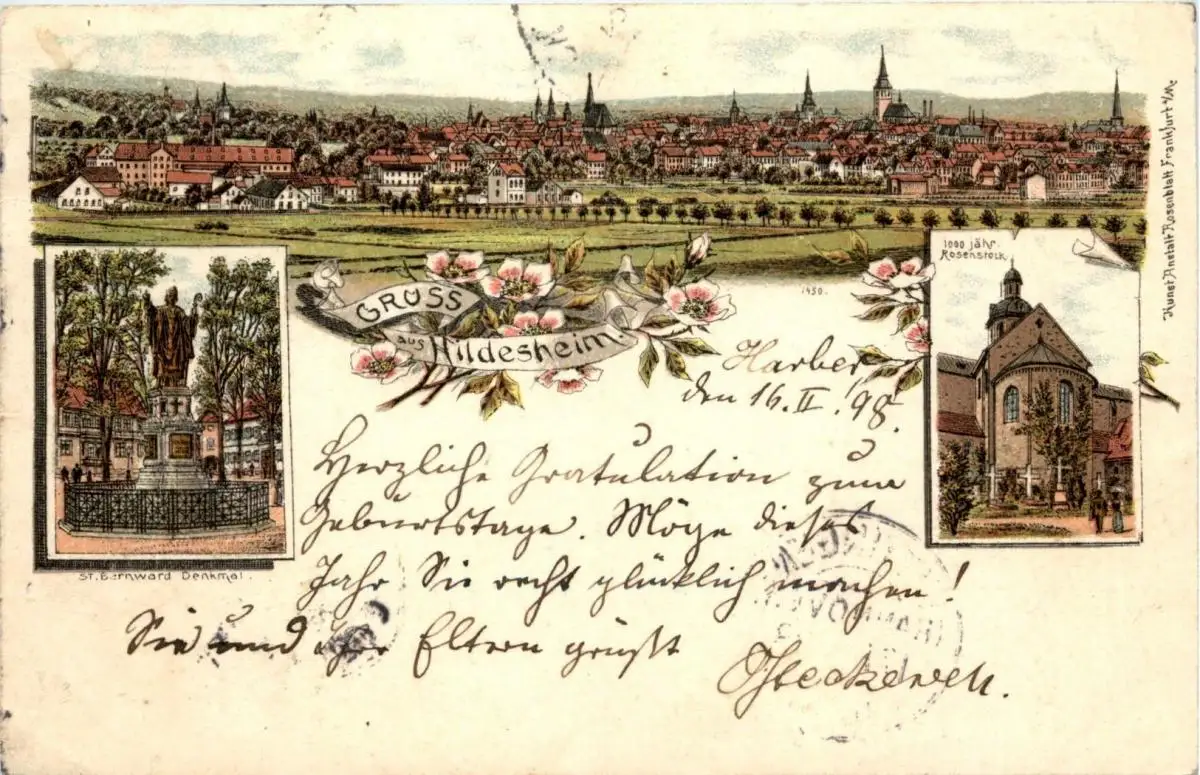 Kunst Anstalt Rosenblatt Frankfurt a/M.
1000 jähr.
Rosenstock
GRUSS
aus
Hildesheim.
1450.
St. Bernward Denkmal.
Harber
den 16. II. 98.
Herzliche Gratulation zum
Geburtstage. Möge dieses
Jahr Sie recht glücklich machen!
Sie und Ihre Eltern grüßt